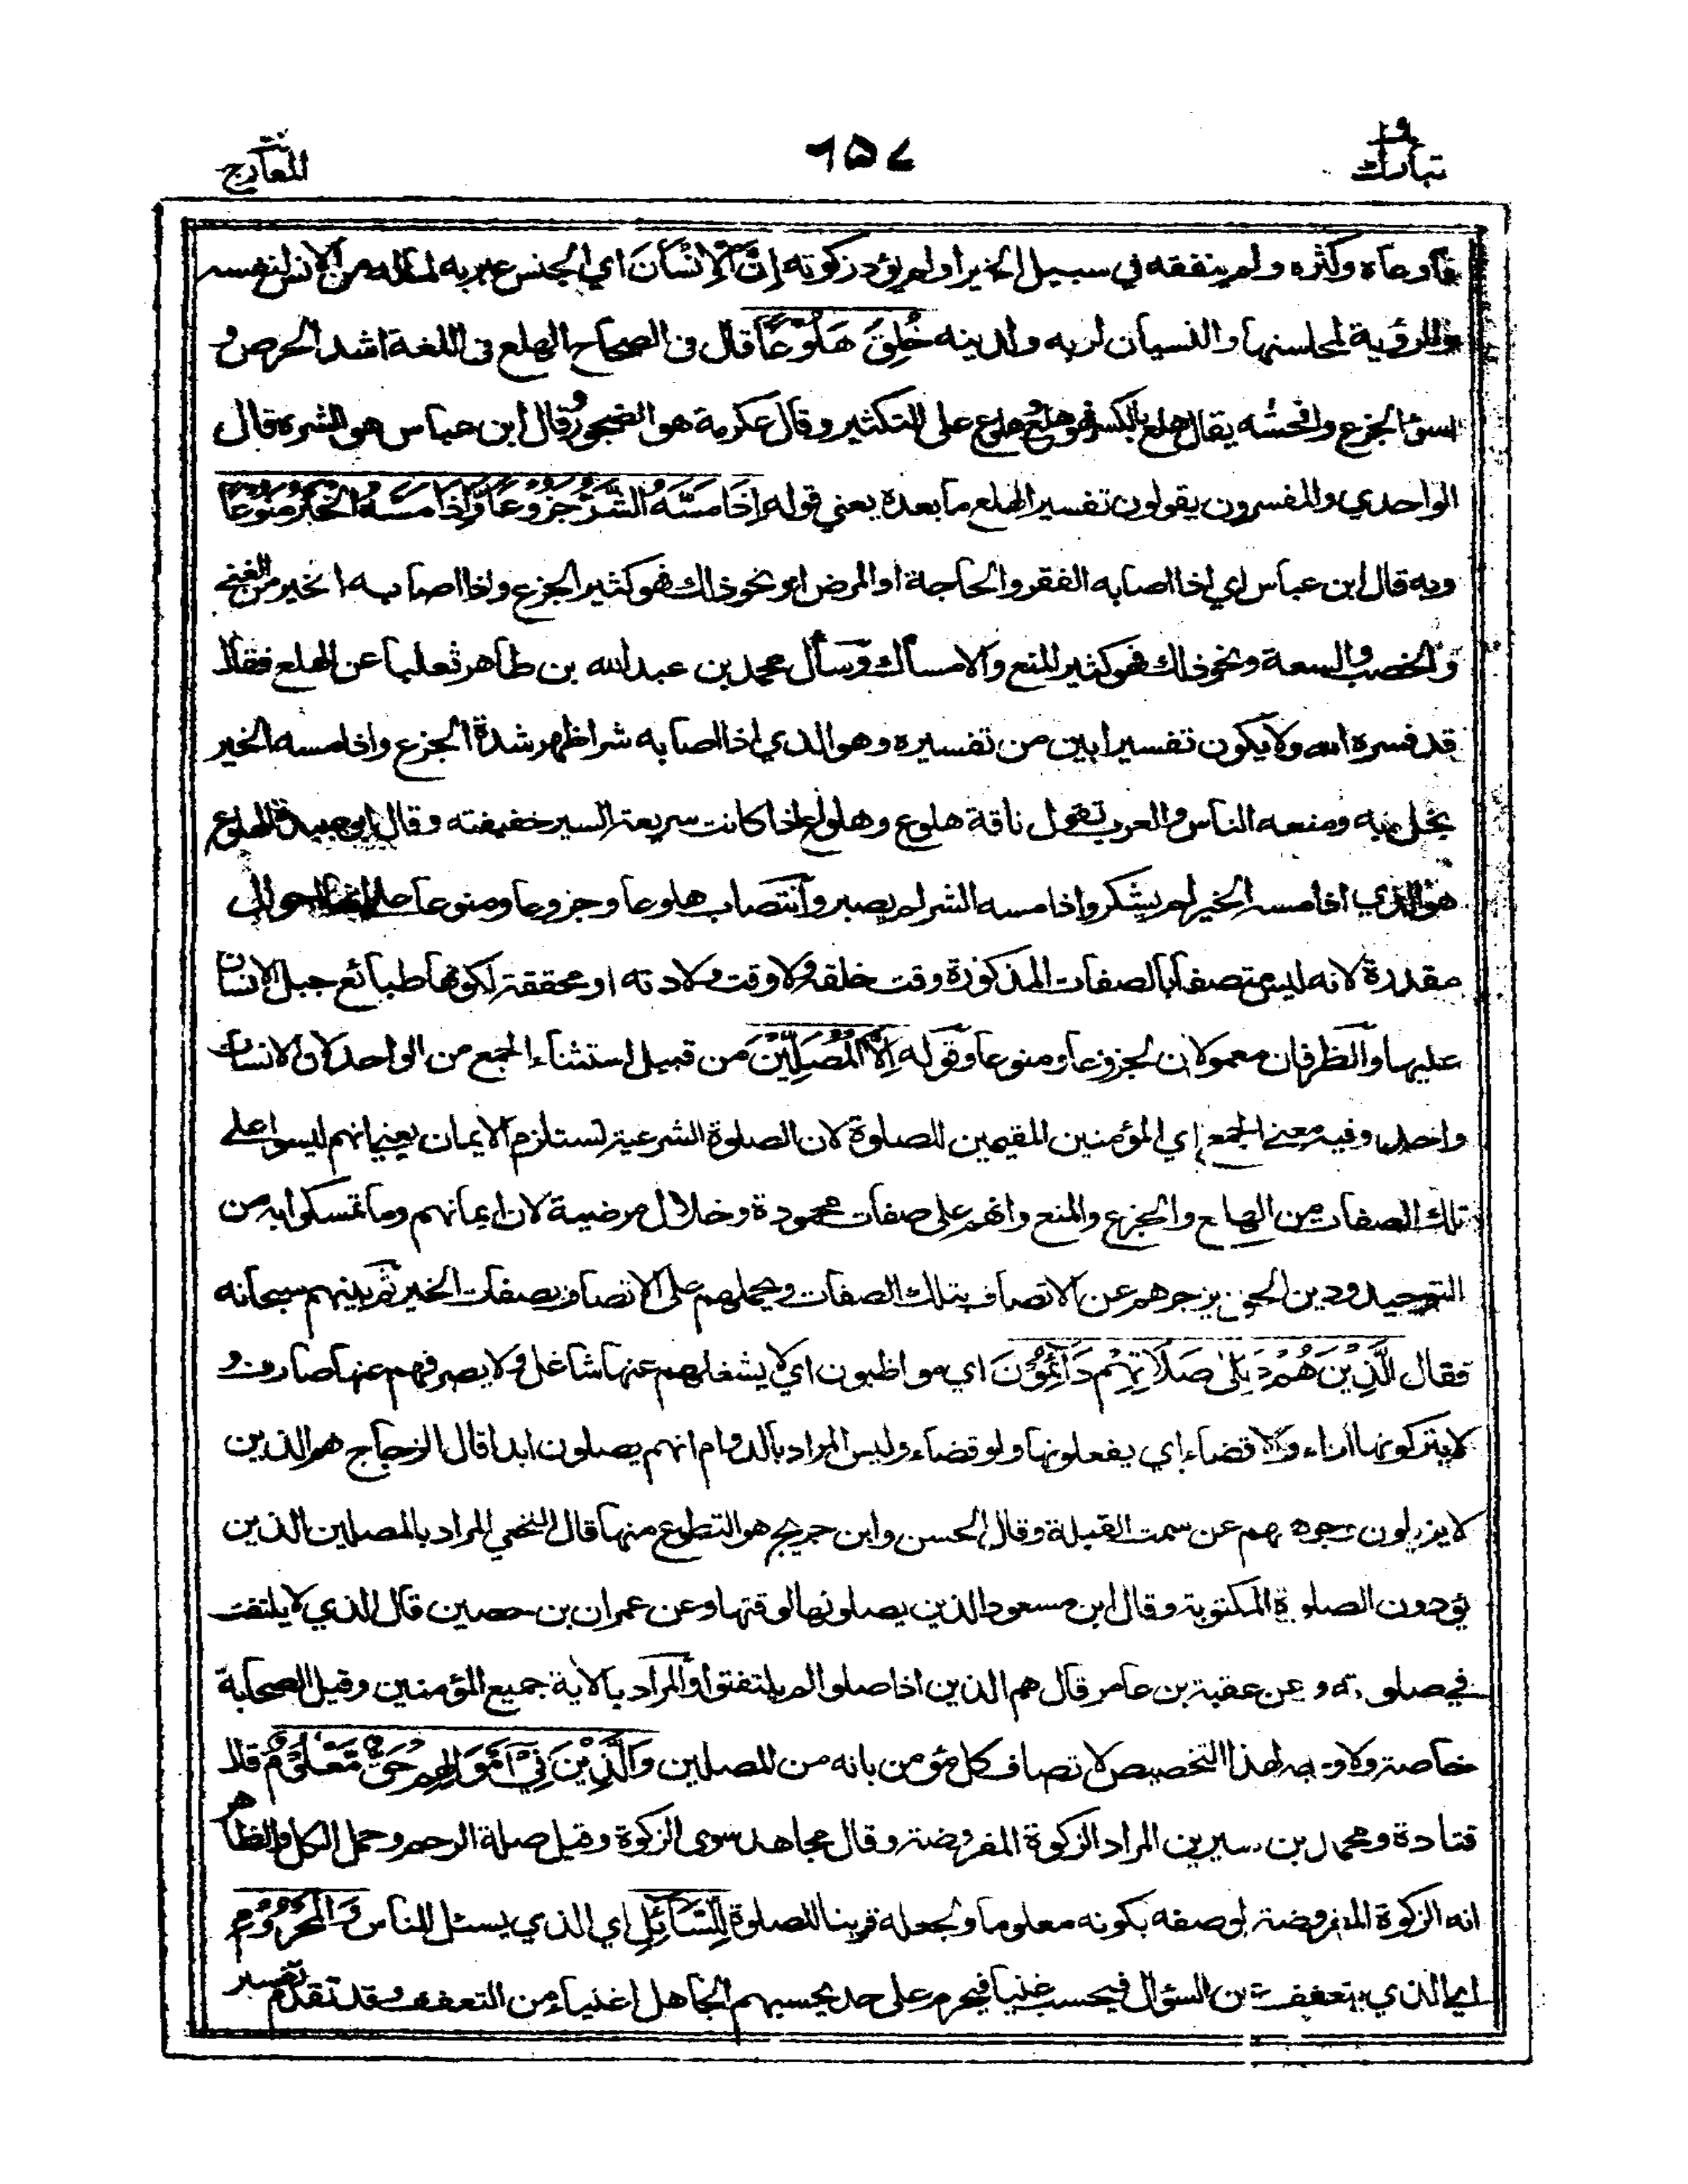 تبارك ٢٩
٦٥٧
المعارج
فأوعاه وكثره ولم ينفقه في سبيل الخير اولم يؤد زكوته إِنَّ الْإِنْسَانَ اي الجنس عبر به لماله من الانس لنفسه
والرؤية لمحاسنها والنسيان لربه ولدينه خُلِقَ هَلُوْعًا قال في الصحاح الهلع في اللغة اشد الحرص و
اسوء الجزع وافحشه يقال هلع بالكسر فهو هلع وهلوع على التكثير وقال عكرمة هو الضجور وقال ابن عباس هو الشره قال
الواحدي والمفسرون يقولون تفسير الهلع ما بعده يعني قوله إِذَا مَسَّهُ الشَّرُّ جَزُوْعًا وَّإِذَا مَسَّهُ الْخَيْرُ مَنُوْعًا
وبه قال ابن عباس اي اذا اصابه الفقر والحاجة او المرض او نحو ذلك فهو كثير الجزع واذا اصابه الخير من الغنى
والخصب والسعة ونحو ذلك فهو كثير المنع والامساك وسأل محمد بن عبد الله بن طاهر ثعلبا عن الهلع فقال
قد فسره الله ولا يكون تفسير ابين من تفسيره وهو الذي اذا اصابه شر اظهر شدة الجزع واذا مسه الخير
بخل به ومنعه الناس والعرب تقول ناقة هلوع وهلواع اذا كانت سريعة السير خفيفته وقال ابو عبيدة الهلوع
هو الذي اذا مسه الخير لم يشكر واذا مسه الشر لم يصبر وانتصاب هلوعا وجزوعا ومنوعا على انها احوال
مقدرة لانه ليس متصفا بالصفات المذكورة وقت خلقه ولا وقت ولادته او محققة لكونها طبائع جبل الانسان
عليها والظرفان معمولان لجزوعا ومنوعا وقوله إِلَّا الْمُصَلِّيْنَ من قبيل استثناء الجمع من الواحد لان الانسان
واحد وفيه معنى الجمع اي المؤمنين المقيمين للصلوة لان الصلوة الشرعية تستلزم الايمان يعني انهم ليسوا على
تلك الصفات من الهلع والجزع والمنع وانهم على صفات محمودة وخلال مرضية لان ايمانهم وما تمسكوا به من
التوحيد ودين الحق يزجرهم عن الاتصاف بتلك الصفات ويحملهم على الاتصاف بصفات الخير ثم بينهم سبحانه
فقال الَّذِيْنَ هُمْ عَلَى صَلَاتِهِمْ دَآئِمُوْنَ اي مواظبون اي لا يشغلهم عنها شاغل ولا يصرفهم عنها صارف و
لا يتركونها اداء ولا قضاء اي يفعلونها ولو قضاء وليس المراد بالدوام انهم يصلون ابدا قال الزجاج هم الذين
لا يزيلون وجوههم عن سمت القبلة وقال الحسن وابن جريج هو التطوع منها قال النخعي المراد بالمصلين الذين
يؤدون الصلوة المكتوبة وقال ابن مسعود الذين يصلونها لوقتها وعن عمران بن حصين قال الذي لا يلتفت
في صلوته وعن عقبة بن عامر قال هم الذين اذا صلوا لم يلتفتوا والمراد بالآية جميع المؤمنين وقيل الصحابة
خاصة ولا وجه لهذا التخصيص لاتصاف كل مؤمن بانه من المصلين وَالَّذِيْنَ فِيْ أَمْوَالِهِمْ حَقٌّ مَّعْلُوْمٌ قال
قتادة ومحمد بن سيرين المراد الزكوة المفروضة وقال مجاهد سوى الزكوة وقيل صلة الرحم وحمل الكل والظاهر
انه الزكوة المفروضة لوصفه بكونه معلوما ولجعله قرينا للصلوة لِلسَّآئِلِ اي الذي يسئل الناس وَالْمَحْرُوْمِ
اي الذي يتعفف عن السؤال فيحسب غنيا فيحرم على حد يحسبهم الجاهل اغنياء من التعفف وقد تقدم تفسير